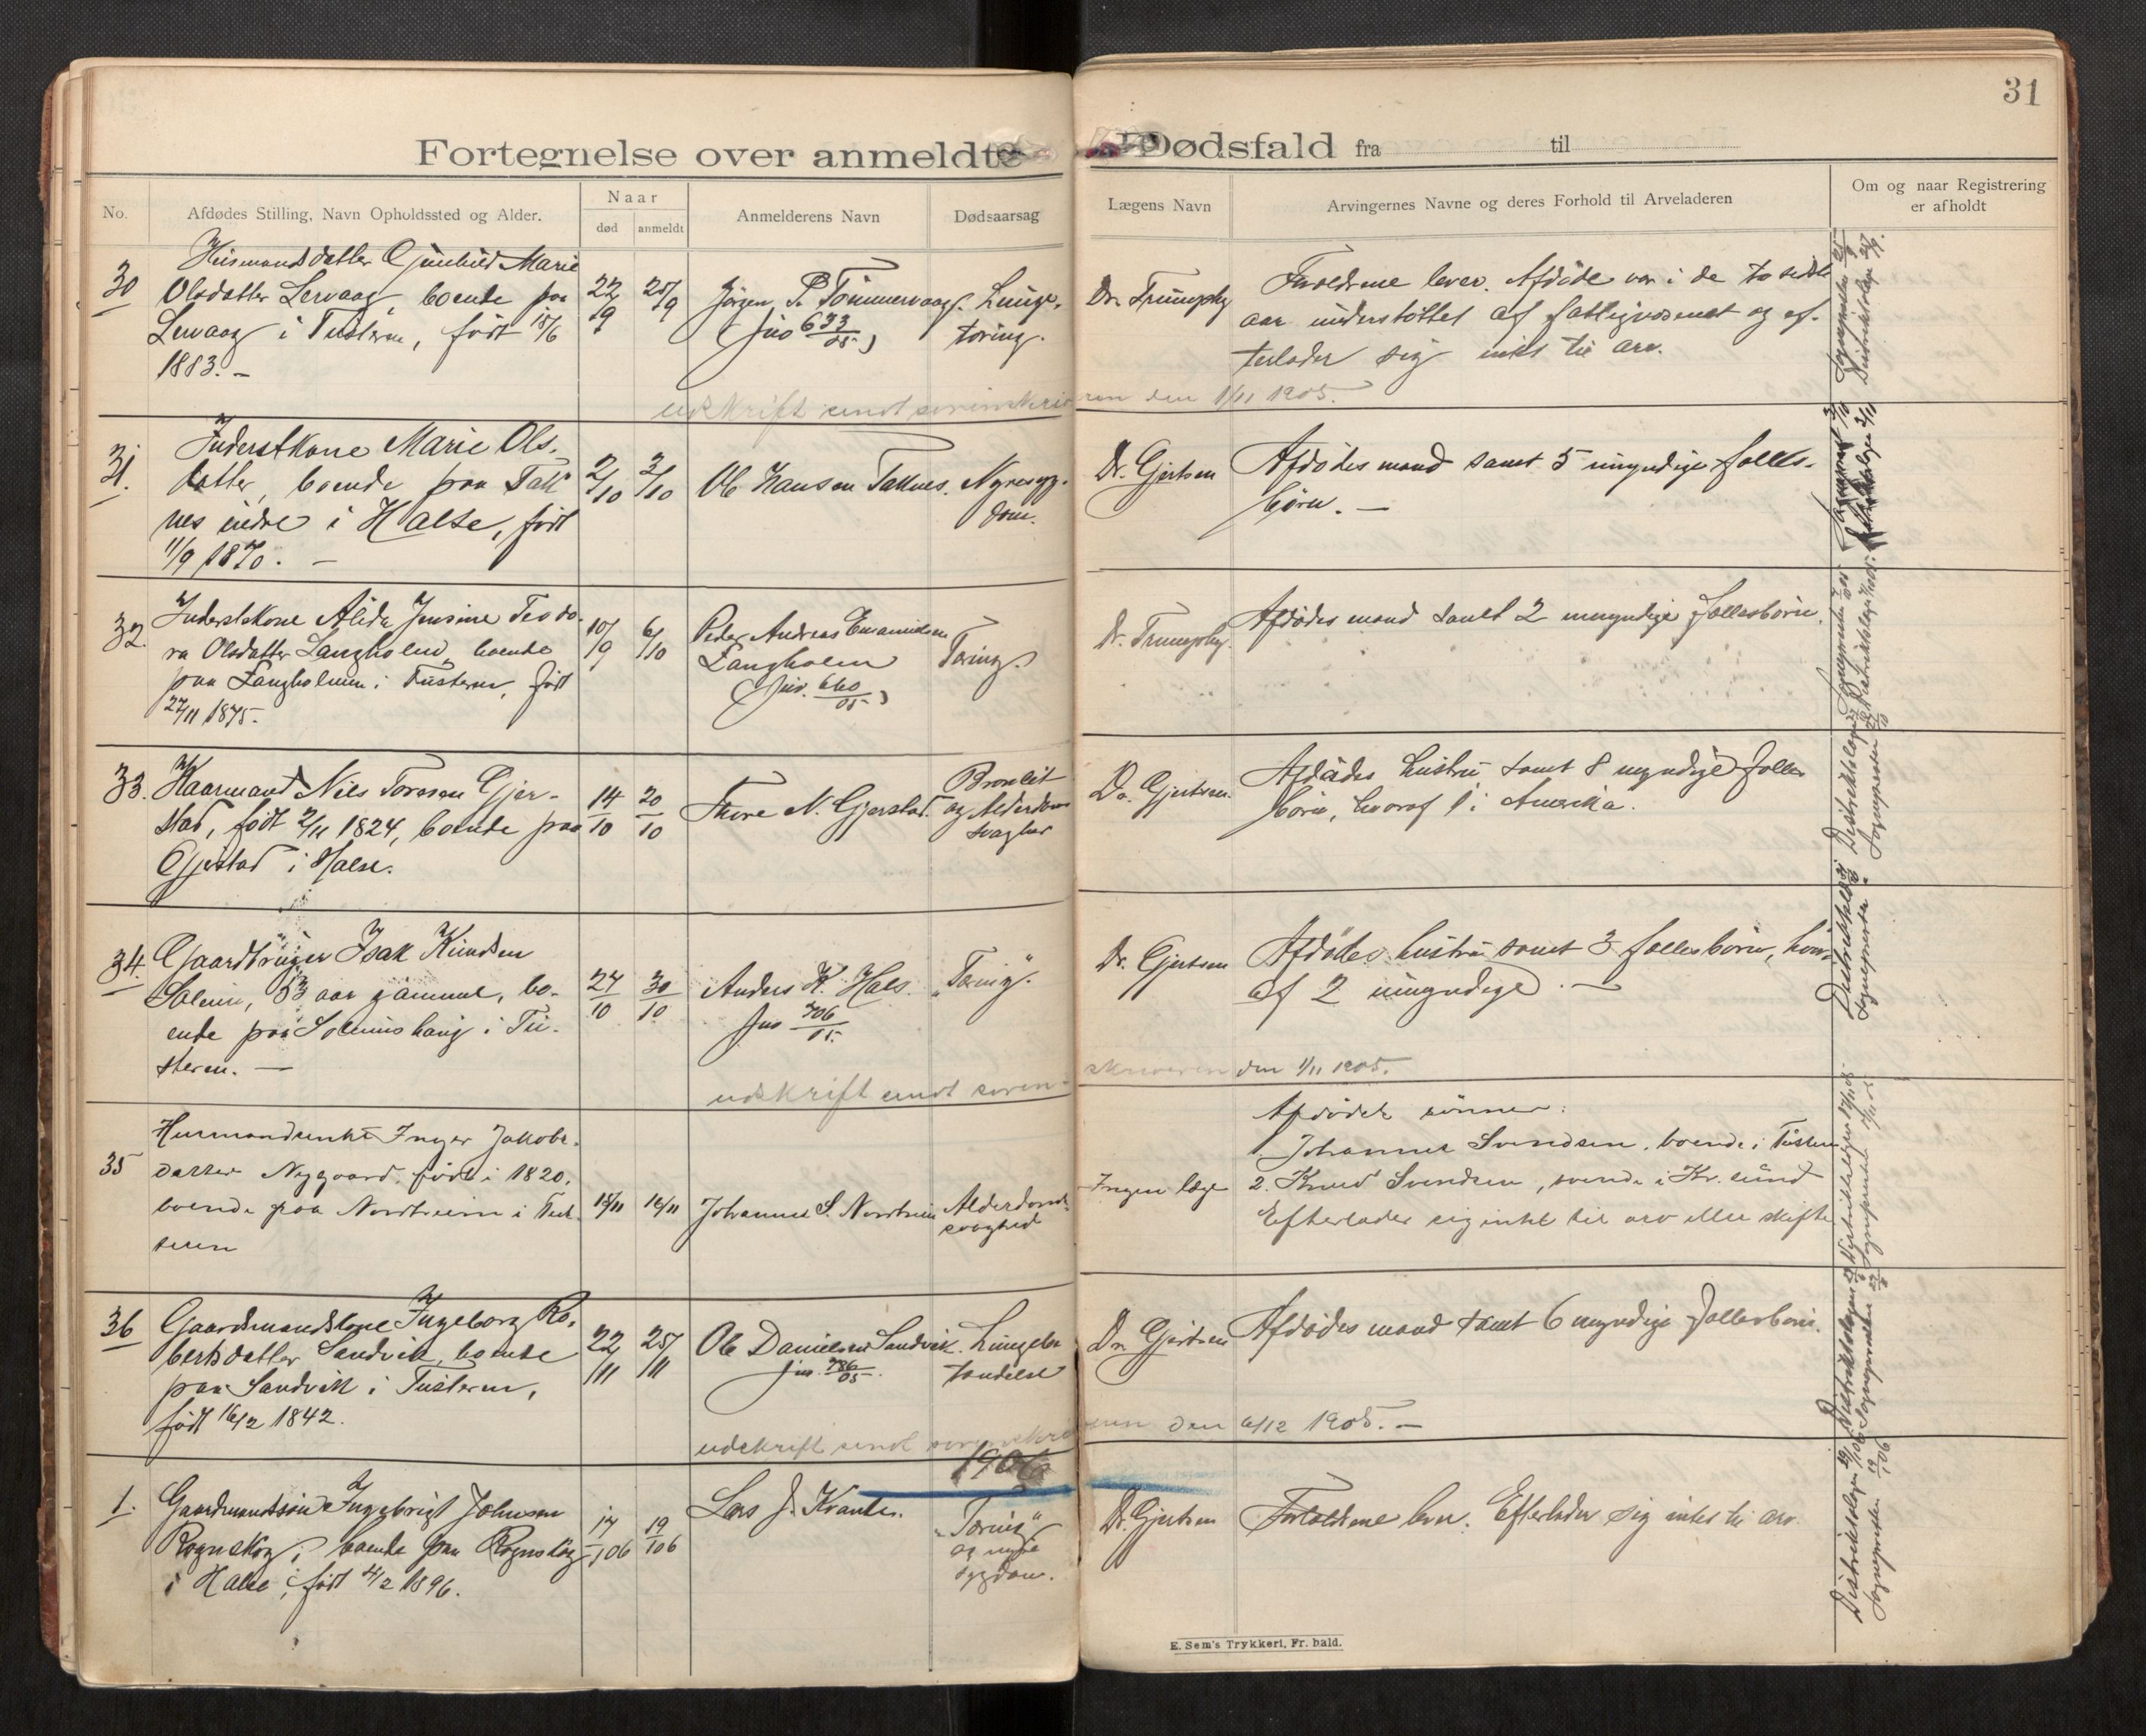 31
Fortegnelse over anmeldte Dødsfald fra til
No.
Afdødes Stilling, Navn Opholdssted og Alder.
Naar
død
anmeldt
Anmelderens Navn
Dødsaarsag
Lægens Navn
Arvingernes Navne og deres Forhold til Arveladeren
Om og naar Registrering
er afholdt
30
Husmandsdatter Gunhild Marie
Olsdatter Lervaag, boende paa
Lervaag i Tusteren, født 18/6
1883. -
22/9
25/9
Jörgen P. Tömmervaag.
(jno 633/05)
Lunge-
tæring.
Dr. Trumphy
Forældrene lever. Afdöde var i de to sidste
aar understöttet af fattigvæsenet og ef-
terlader sig intet til arv.
udskrift sendt sorenskriveren den 1/11 1905.
31.
Inderstkone Marie Ols-
datter, boende paa Tak-
nes indre i Halse, født
11/9 1870. -
2/10
3/10
Ole Hansen Taknes.
Nyresyg-
dom.
Dr. Gjertsen
Afdødes mand samt 5 umyndige fælles-
börn. -
32.
Inderstkone Alida Jensine Teodo-
ra Olsdatter Langholm, boende
paa Langholmen i Tusteren, født
27/11 1875.
10/9
6/10
Peder Andreas Emanuelsen
Langholm
(jno. 660/05)
Tæring.
Dr. Trumphy.
Afdødes mand samt 2 umyndige fællesbörn.
33.
Kaarmand Nils Toresen Gjer-
stad, født 2/11 1824, boende paa
Gjerstad i Halse.
14/10
20/10
Thore N. Gjerstad.
Bronkit
og Alderdoms
svaghed
Dr. Gjertsen.
Afdødes hustru samt 8 myndige fælles
börn, hvoraf 1 i Amerika.
34.
Gaardbruger Isak Knudsen
Solem, 53 aar gammel, bo-
ende paa Solemshaug i Tu-
steren. -
24/10
30/10
Anders K. Hals.
jno 706/05.
"Tæring".
Dr. Gjertsen
Afdødes hustru samt 3 fællesbörn, hvor-
af 2 umyndige. -
udskrift sendt soren-
skriveren den 1/11 1905.
35
Husmandsenke Inger Jakobs-
datter Nygaard, født i 1820,
boende paa Nordheim i Tu-
steren
15/11
16/11
Johannes S. Nordheim
Alderdoms-
svaghed
Ingen læge
Afdödes sönner:
1. Johannes Svendsen, boende i Tusteren
2. Knud Svendsen, boende i Kr. sund
Efterlader sig intet til arv eller skifte
36
Gaardmandskone Ingeborg Ro-
bertsdatter Sandvik, boende
paa Sandvik i Tusteren,
født 16/2 1842.
22/11
25/11
Ole Danielsen Sandvik.
jno. 786/05.
Lungebe-
tændelse
Dr. Gjertsen
Afdødes mand samt 6 myndige fællesbörn.
udskrift sendt sorenskriveren den 6/12 1905. -
1906
1.
Gaardmandssön Ingebrigt Johnsen
Rognskog, boende paa Rognskog
i Halse, født 4/2 1896.
17/1 06
19/1 06
Lars J. Kvande.
"Tæring"
og nyre
sygdom.
Dr. Gjertsen
Forældrene lever. Efterlader sig intet til arv.
E. Sem's Trykkeri, Fr. hald.